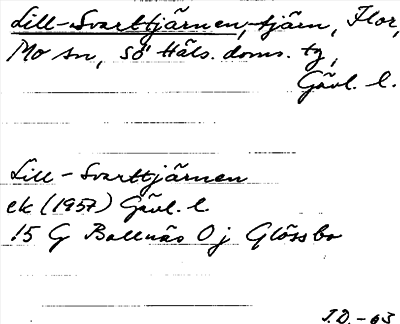 Lill-Svarttjärnen, tjärn, Flor,
Mo sn, Sö Häls. doms. tg,
Gävl. l.
Lill-Svarttjärnen
ek (1957) Gävl. l.
15 G Bollnäs 0 j Glössbo
J.D. -63